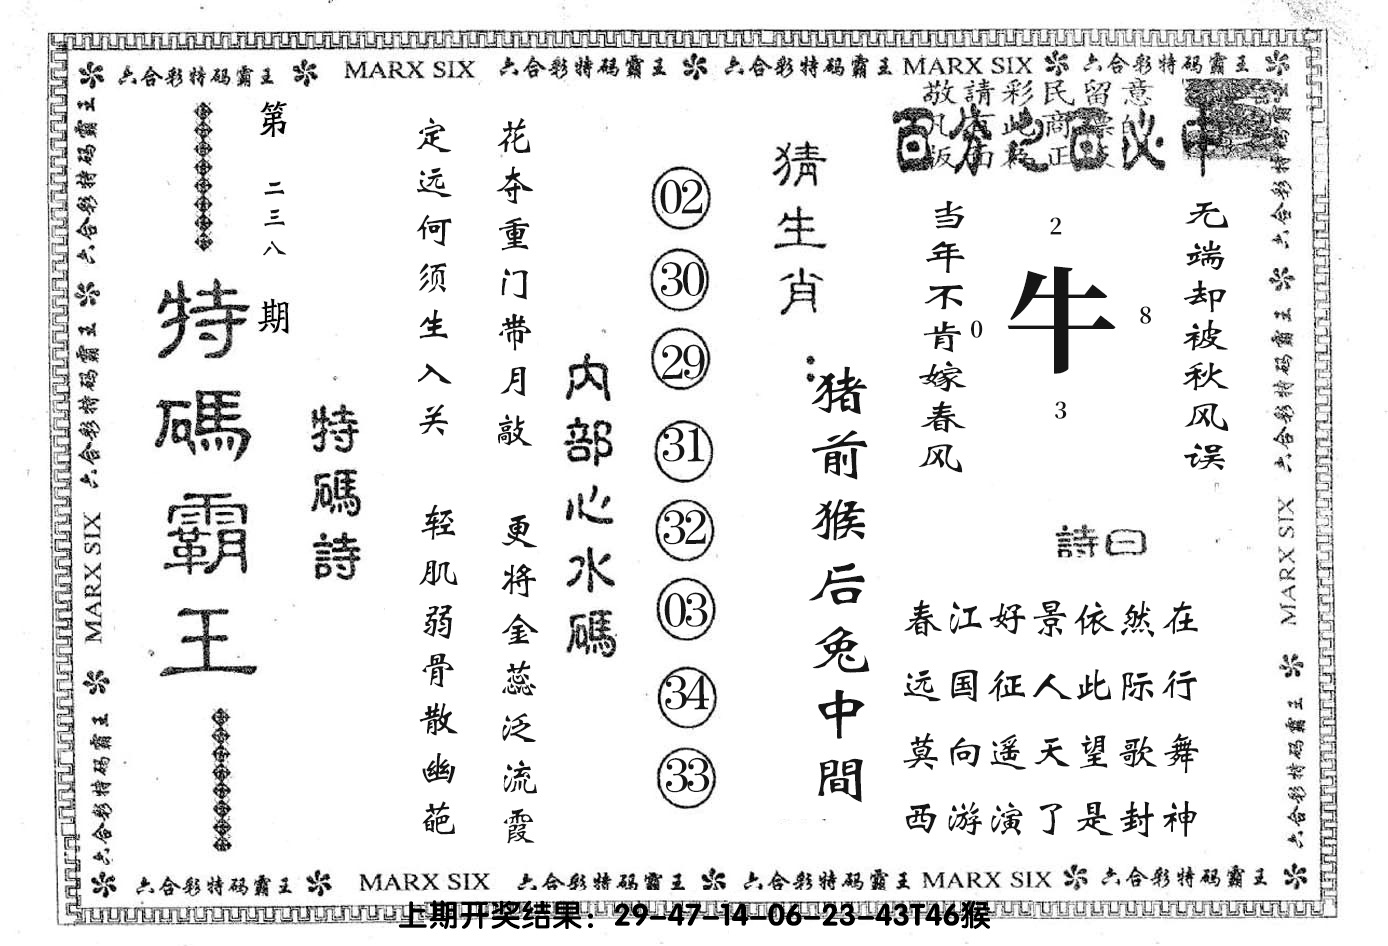 六合彩特码霸王 MARX SIX 六合彩特码霸王 六合彩特码霸王 MARX SIX 六合彩特码霸王
敬請彩民留意
无端却被秋风误
当年不肯嫁春风
2
0
牛
8
3
詩曰
春江好景依然在
远国征人此际行
莫向遥天望歌舞
西游演了是封神
猜生肖:
猪前猴后兔中間
02
30
29
31
32
03
34
33
内部心水碼
花夺重门带月敲 更将金蕊泛流霞
定远何须生入关 轻肌弱骨散幽葩
特碼詩
第二三八期
特碼霸王
六合彩特码霸王 六合彩特码霸王 MARX SIX 六合彩特码霸王
六合彩特码霸王 六合彩特码霸王 MARX SIX 六合彩特码霸王
六合彩特码霸王 MARX SIX 六合彩特码霸王 六合彩特码霸王 MARX SIX 六合彩特码霸王
上期开奖结果：29-47-14-06-23-43T46猴